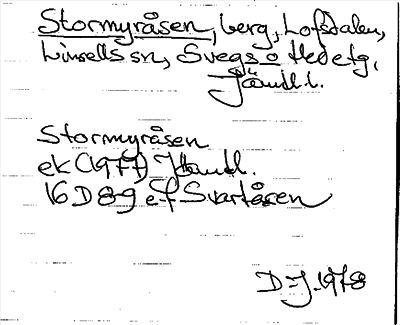 Stormyråsen, berg, Lofsdalen,
Linsells sn, Svegs o Hedetg,
Jämtl. l.
Stormyråsen
ek (1977) Jämtl.
16 D 8-9 e-f Svartåsen
D-J 1978